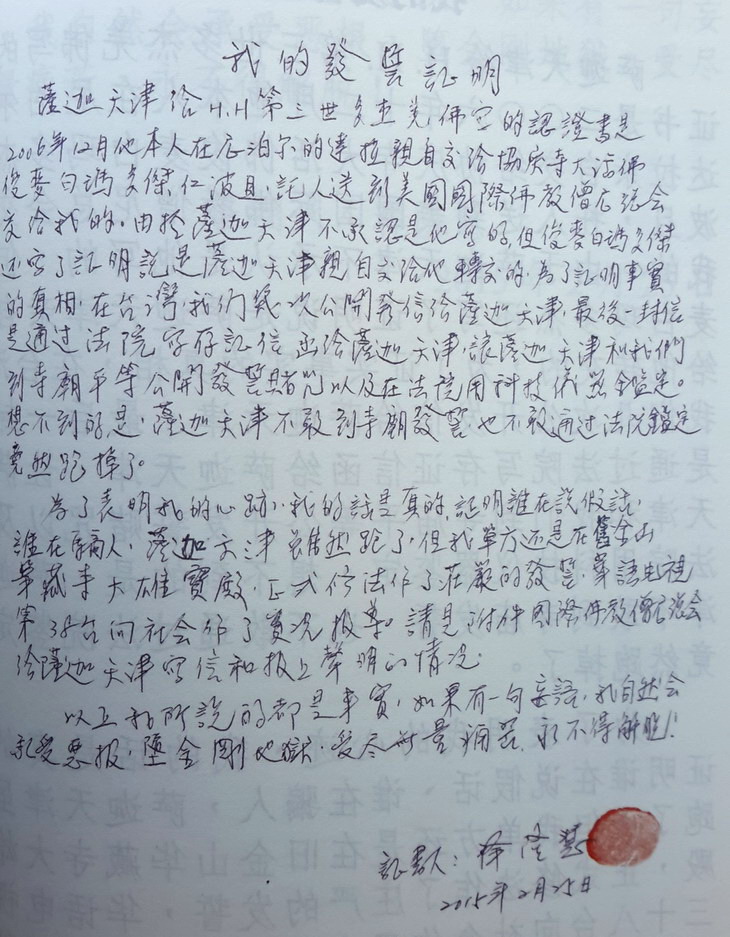 我的發誓証明
薩迦天津給H.H第三世多杰羌佛寫的認證書是
2006年12月他本人在尼泊尔的達拉親自交給協庆寺大活佛
俊麥白瑪多傑仁波且,託人送到美國國際佛教僧尼總会
交给我的,由於薩迦天津不承認是他寫的,但俊麥白瑪多傑
还寫了証明說是薩迦天津親自交給他轉交的,為了証明事實
的真相,在台灣,我们幾次公開發信给薩迦天津,最後一封信
是通过法院寫存証信函给薩迦天津,讓薩迦天津和我們
到寺廟平等公開發誓賭咒以及在法院用科技儀器鑑定。
想不到的是,薩迦天津不敢到寺廟發誓,也不敢通过法院鑑定
竟然跑掉了。
為了表明我的心跡,我的話是真的,証明誰在說假話,
誰在騙人,薩迦天津雖然跑了,但我單方还是在舊金山
華藏寺大雄寶殿,正式修法作了莊嚴的發誓,華語电视
第38台向社会作了實况报导。請見附件國際佛教僧尼總会
给薩迦天津寫信和报上聲明的情况。
以上我所說的都是事實,如果有一句妄語,我自然会
承受惡报,墮金剛地獄,受尽無量痛苦,永不得解脱!
証明人:釋隆慧
2015年2月25日